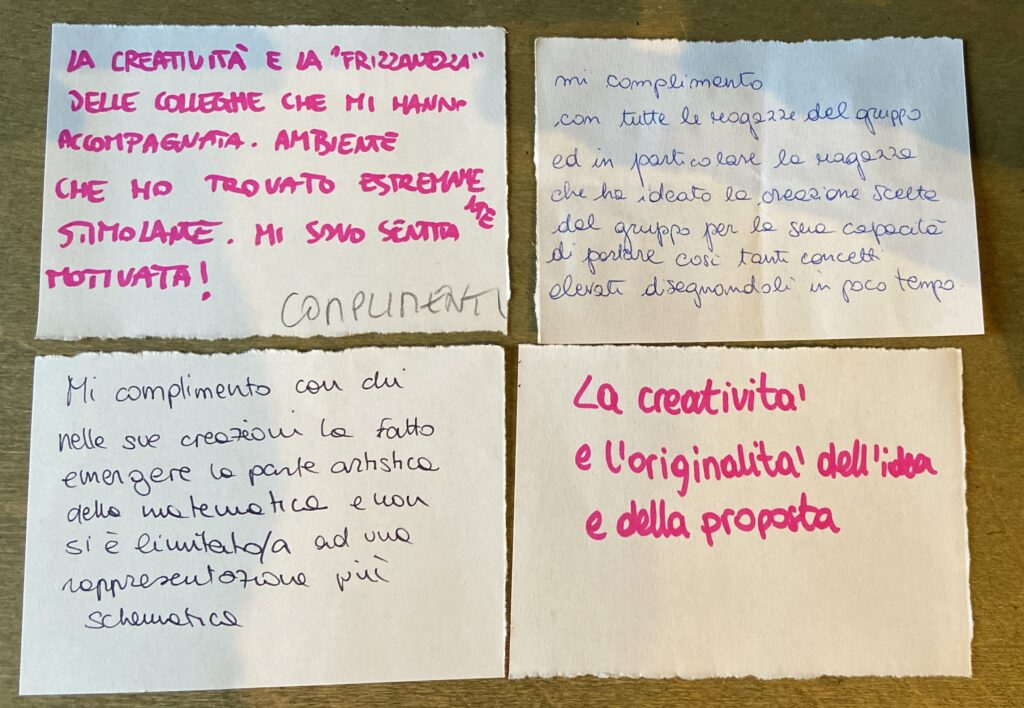 LA CREATIVITÀ E LA "FRIZZANEZZA"
DELLE COLLEGHE CHE MI HANNO
ACCOMPAGNATA. AMBIENTE
CHE HO TROVATO ESTREMAME
NTE
STIMOLANTE. MI SONO SENTITA
MOTIVATA!
COMPLIMENTI
mi complimento
con tutte le ragazze del gruppo
ed in particolare la ragazza
che ha ideato la creazione scelta
dal gruppo per la sua capacità
di portare così tanti concetti
elevati disegnandoli in poco tempo.
Mi complimento con chi
nelle sue creazioni ha fatto
emergere la parte artistica
della matematica e non
si è limitato/a ad una
rappresentazione più
schematica
La creatività
e l'originalità dell'idea
e della proposta